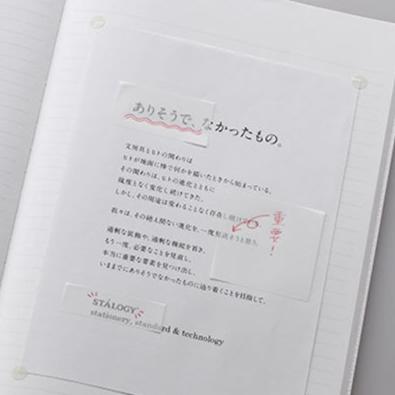 ありそうで、なかったもの。
文房具とヒトの関わりは
ヒトが地面に棒で何かを描いたときから始まっている。
その関わりは、ヒトの進化とともに
幾度となく変化し続けてきた。
しかし、その用途は変わることなく存在し続けている。
重要!
我々は、その絶え間ない進化を、一度見直そうと思う。
過剰な装飾や、過剰な機能を省き、
もう一度、必要なことを見直し、
本当に重要な要素を見つけ出し、
いままでにありそうでなかったものに辿り着くことを目指して。
STÁLOGY
stationery, standard & technology